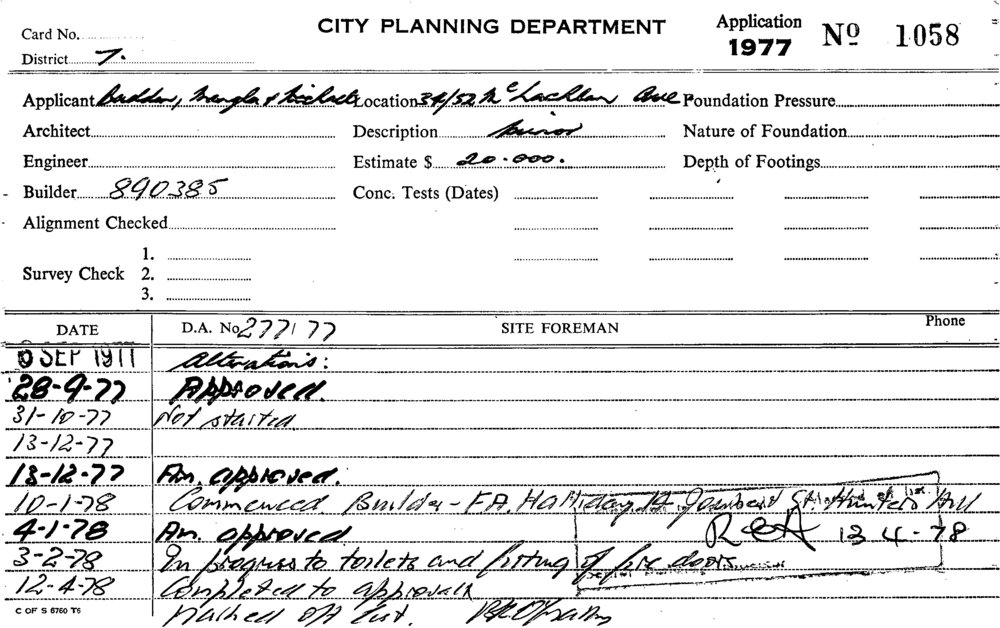 Card No.
CITY PLANNING DEPARTMENT
Application 1977 Nº 1058
District 7.
Applicant Location 34/52 McLachlan Ave Foundation Pressure
Architect Description Minor Nature of Foundation
Engineer Estimate $ 20.000. Depth of Footings
Builder 890385 Conc. Tests (Dates)
Alignment Checked
1.
Survey Check 2.
3.
DATE D.A. No 277/77 SITE FOREMAN Phone
SEP Alterations:
28-9-77 Approved.
31-10-77 Not started
13-12-77
13-12-77 Am. approved.
10-1-78 Commenced Builder - F.A. Halliday 14 Joubert St. Hunters Hill
4-1-78 Am. approved 13 4-78
3-2-78 In progress to toilets and fitting of fire doors
12-4-78 Completed to approvals
marked off list.
C OF S 6760 T6